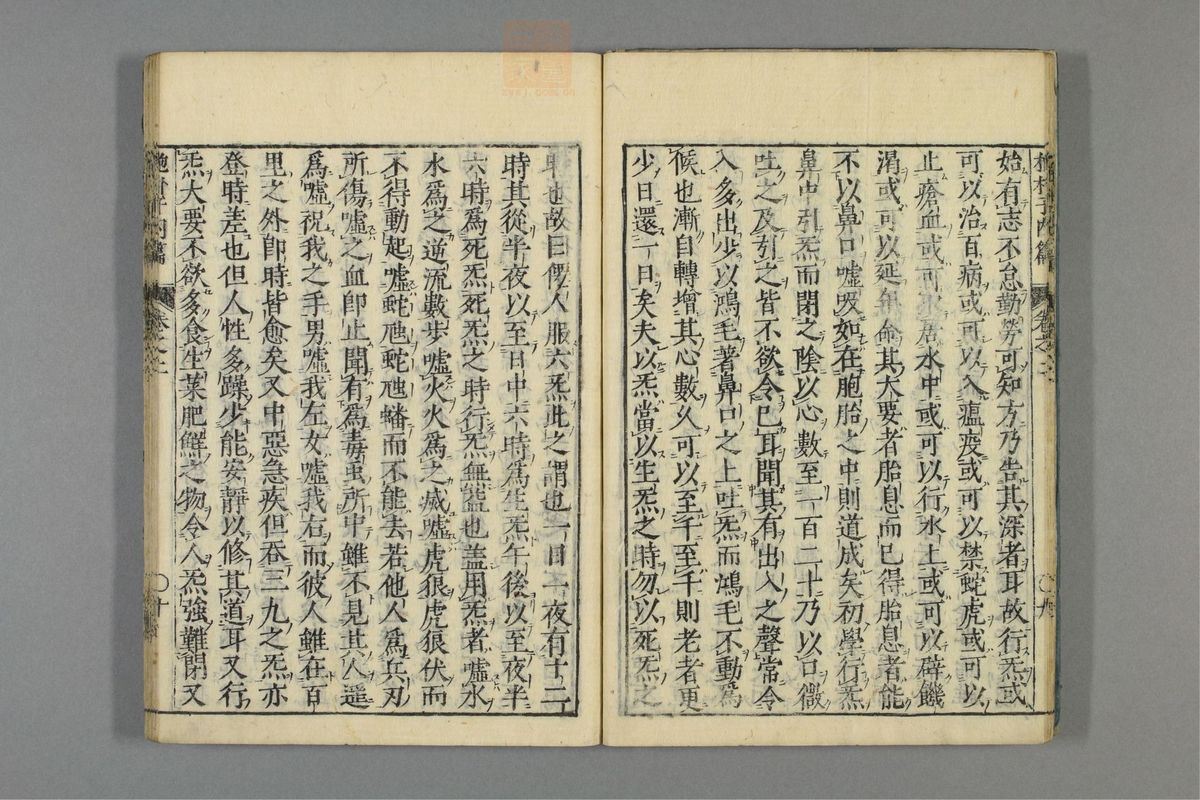 抱朴子内篇 卷之二 〇九
始有志不怠勤勞可知方乃告其深者耳故行炁或
可以治百病或可以入瘟疫或可以禁蛇虎或可以
止瘡血或可以居水中或可以行水上或可以辟饑
渴或可以延年命其大要者胎息而已得胎息者能
不以鼻口噓吸如在胞胎之中則道成矣初學行炁
鼻中引炁而閉之陰以心數至一百二十乃以口微
吐之及引之皆不欲令已耳聞其有出入之聲常令
入多出少以鴻毛著鼻口之上吐炁而鴻毛不動爲
候也漸自轉增其心數久久可以至千至千則老者更
少日還一日矣夫以炁當以生炁之時勿以死炁之
時也故曰僊人服六炁此之謂也一日一夜有十二
時其從半夜以至日中六時爲生炁午後以至夜半
六時爲死炁死炁之時行炁無益也盖用炁者噓水
水爲之逆流數步噓火火爲之滅噓虎狼虎狼伏而
不得動起噓蛇虺蛇虺蟠而不能去若他人爲兵刃
所傷噓之血即止聞有爲毒虫所中雖不見其人遥
爲噓祝我之手男噓我左女噓我右而彼人雖在百
里之外即時皆愈矣又中惡急疾但吞三九之炁亦
登時差也但人性多躁少能安靜以修其道耳又行
炁大要不欲多食生菜肥鮮之物令人炁強難閉又
抱朴子内篇 卷之二 〇十